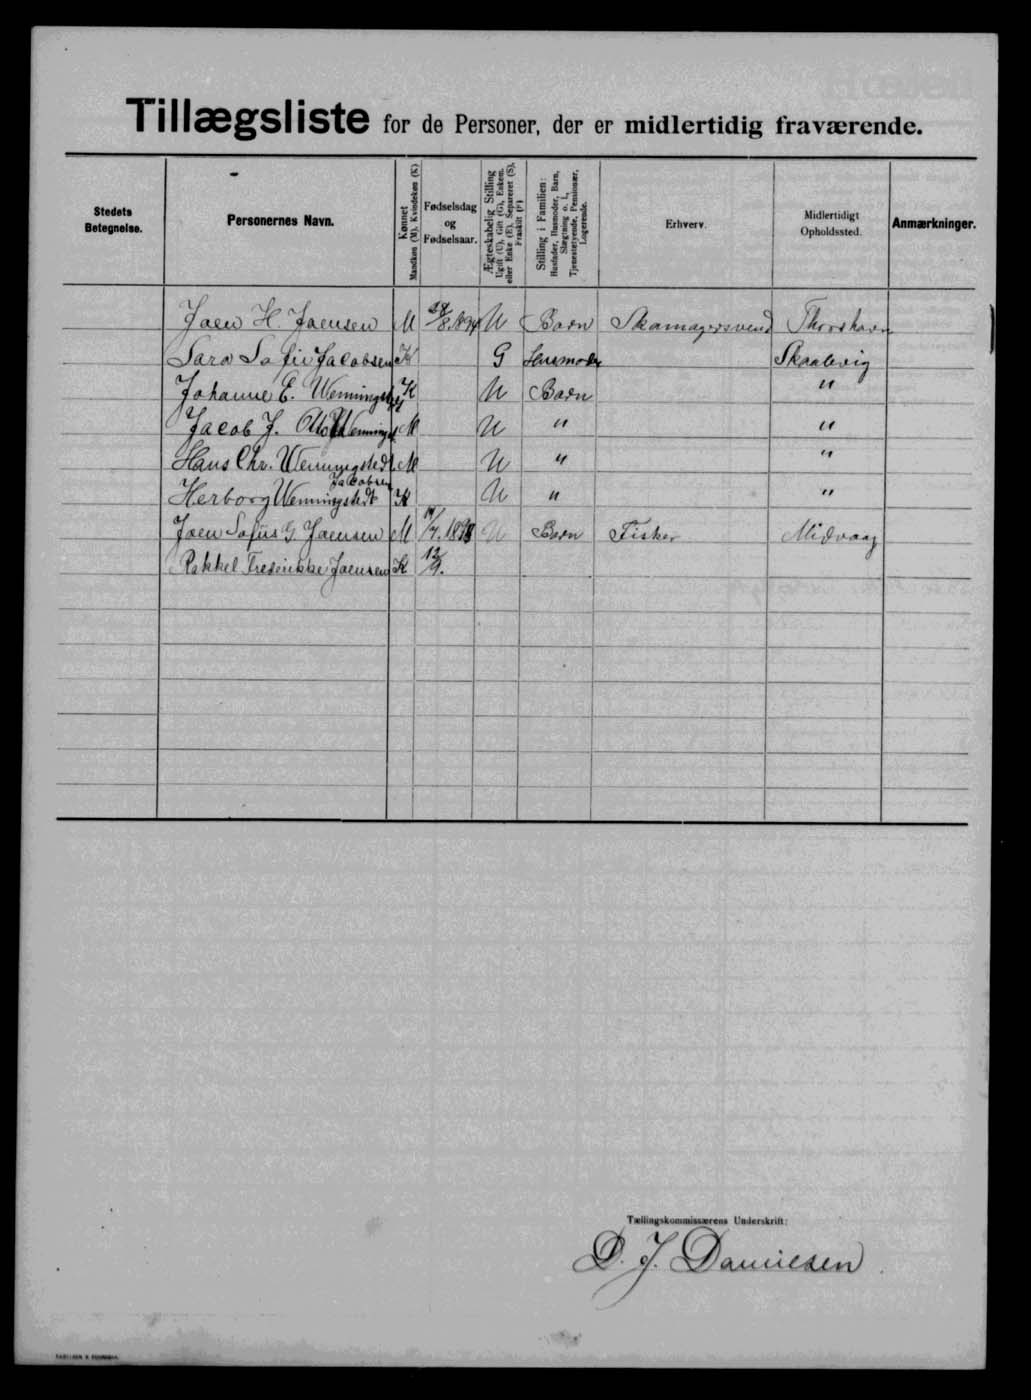 Tillægsliste for de Personer, der er midlertidig fraværende.
Stedets Betegnelse.
Personernes Navn.
Kønnet Mandkøn (M), Kvindekøn (K)
Fødselsdag og Fødselsaar.
Ægteskabelig Stilling Ugift (U), Gift (G), Enkem. eller Enke (E), Separeret (S), Fraskilt (F)
Stilling i Familien: Husfader, Husmoder, Barn, Slægtning o. l., Tjenestetyende, Pensionær, Logerende.
Erhverv.
Midlertidigt Opholdssted.
Anmærkninger.
Joen H. Joensen M /8. 1894 U Barn Skomagersvend Thorshavn
Sara Sofie Jacobsen K G Husmoder Skaalevig
Johanne E. Wenningstedt K U Barn "
Jacob J. Otto Wenningst M U " "
Hans Chr. Wenningstedt M U " "
Jacobsen
Herborg Wenningstedt K U " "
Joen Sofus G Joensen M /7. U Barn Fisker Midvaag
Rakkel Fredrikke Joensen K 12/9.
Tællingskommissærens Underskrift:
D. J. Danielsen